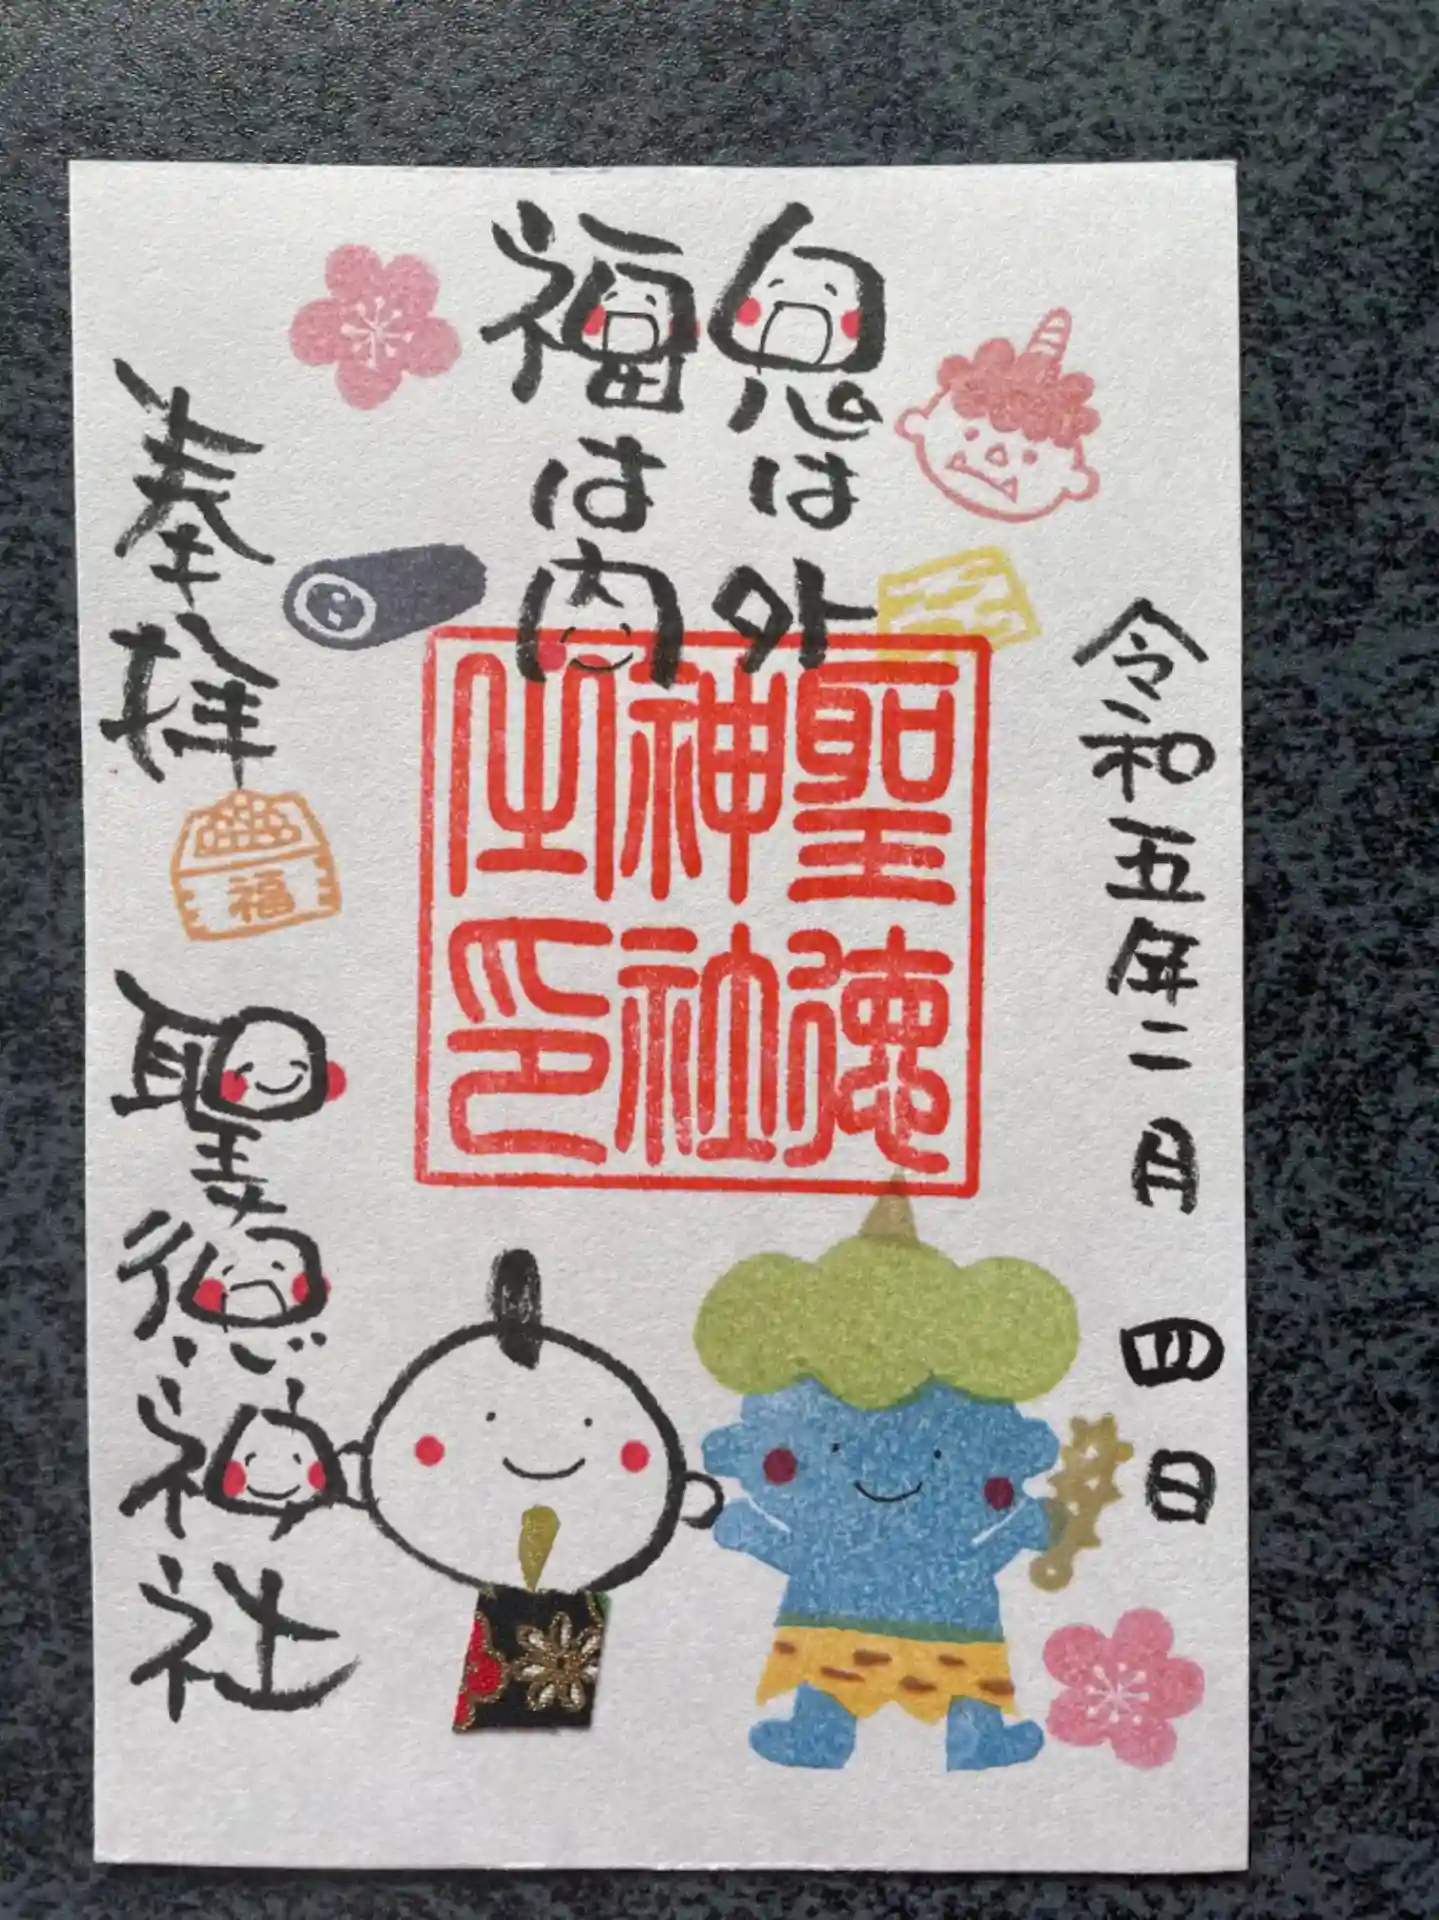 令和五年二月四日
鬼は外
福は内
聖徳
神社
之印
奉拝
福
聖徳神社